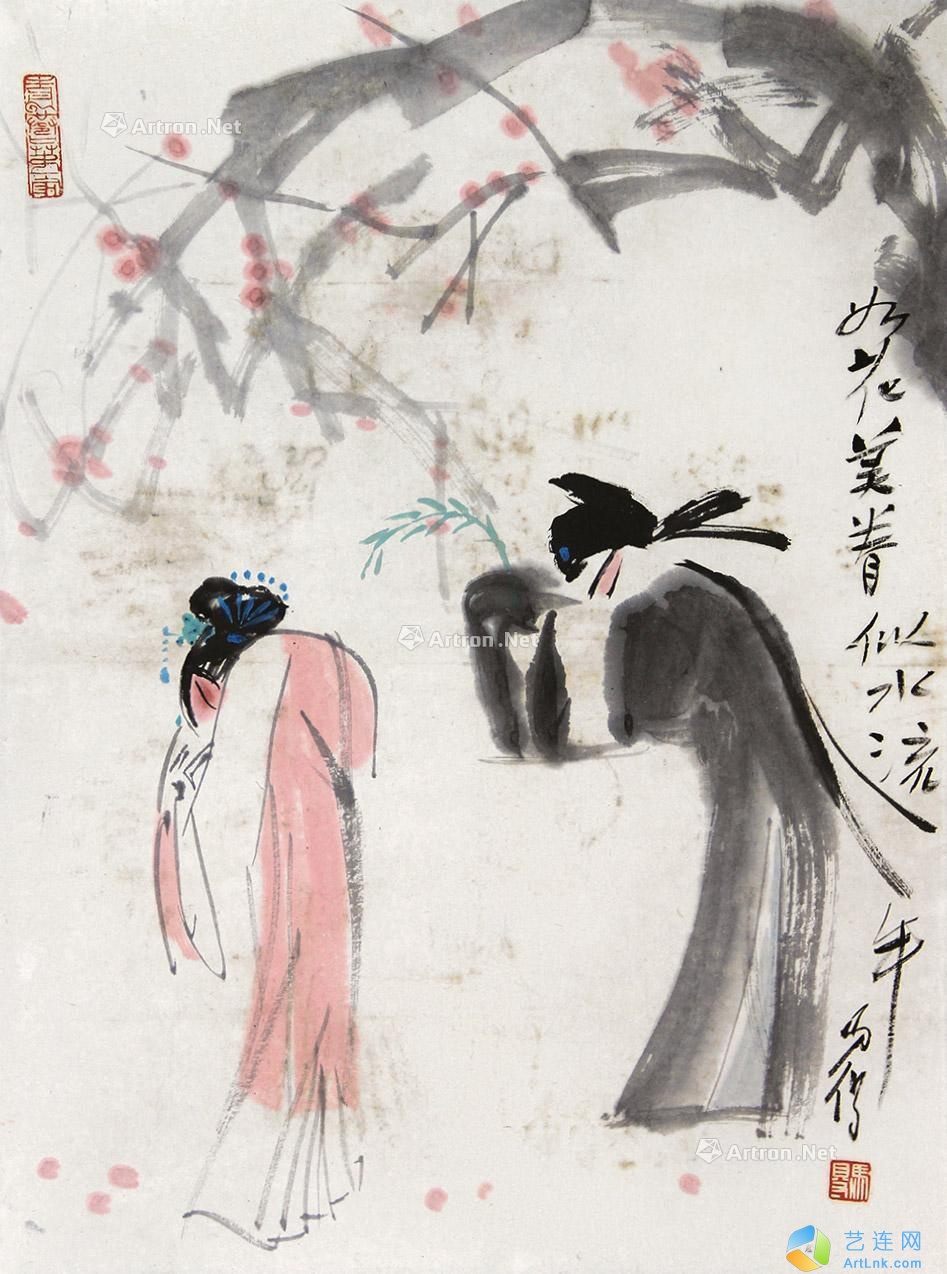 Artron.Net
如花美眷似水流年
马得
Artron.Net
Artron.Net
艺连网
ArtLnk.com